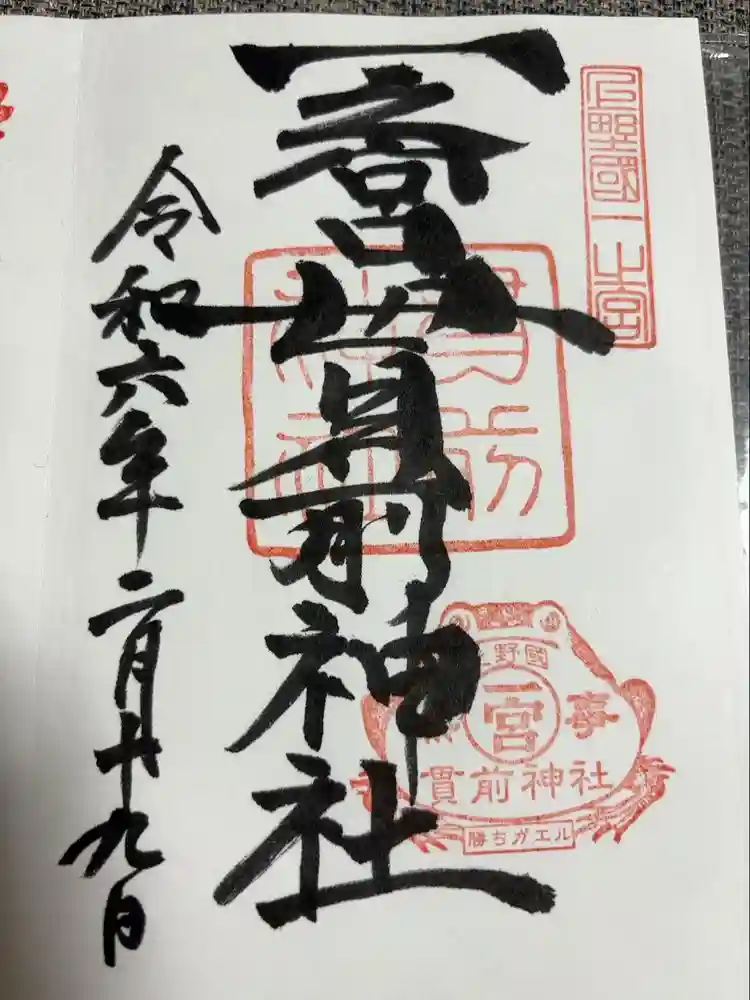 上野國一之宮
一之宮貫前神社
貫前
神社
上野國
一宮
無事
貫前神社
勝ちガエル
令和六年二月十九日